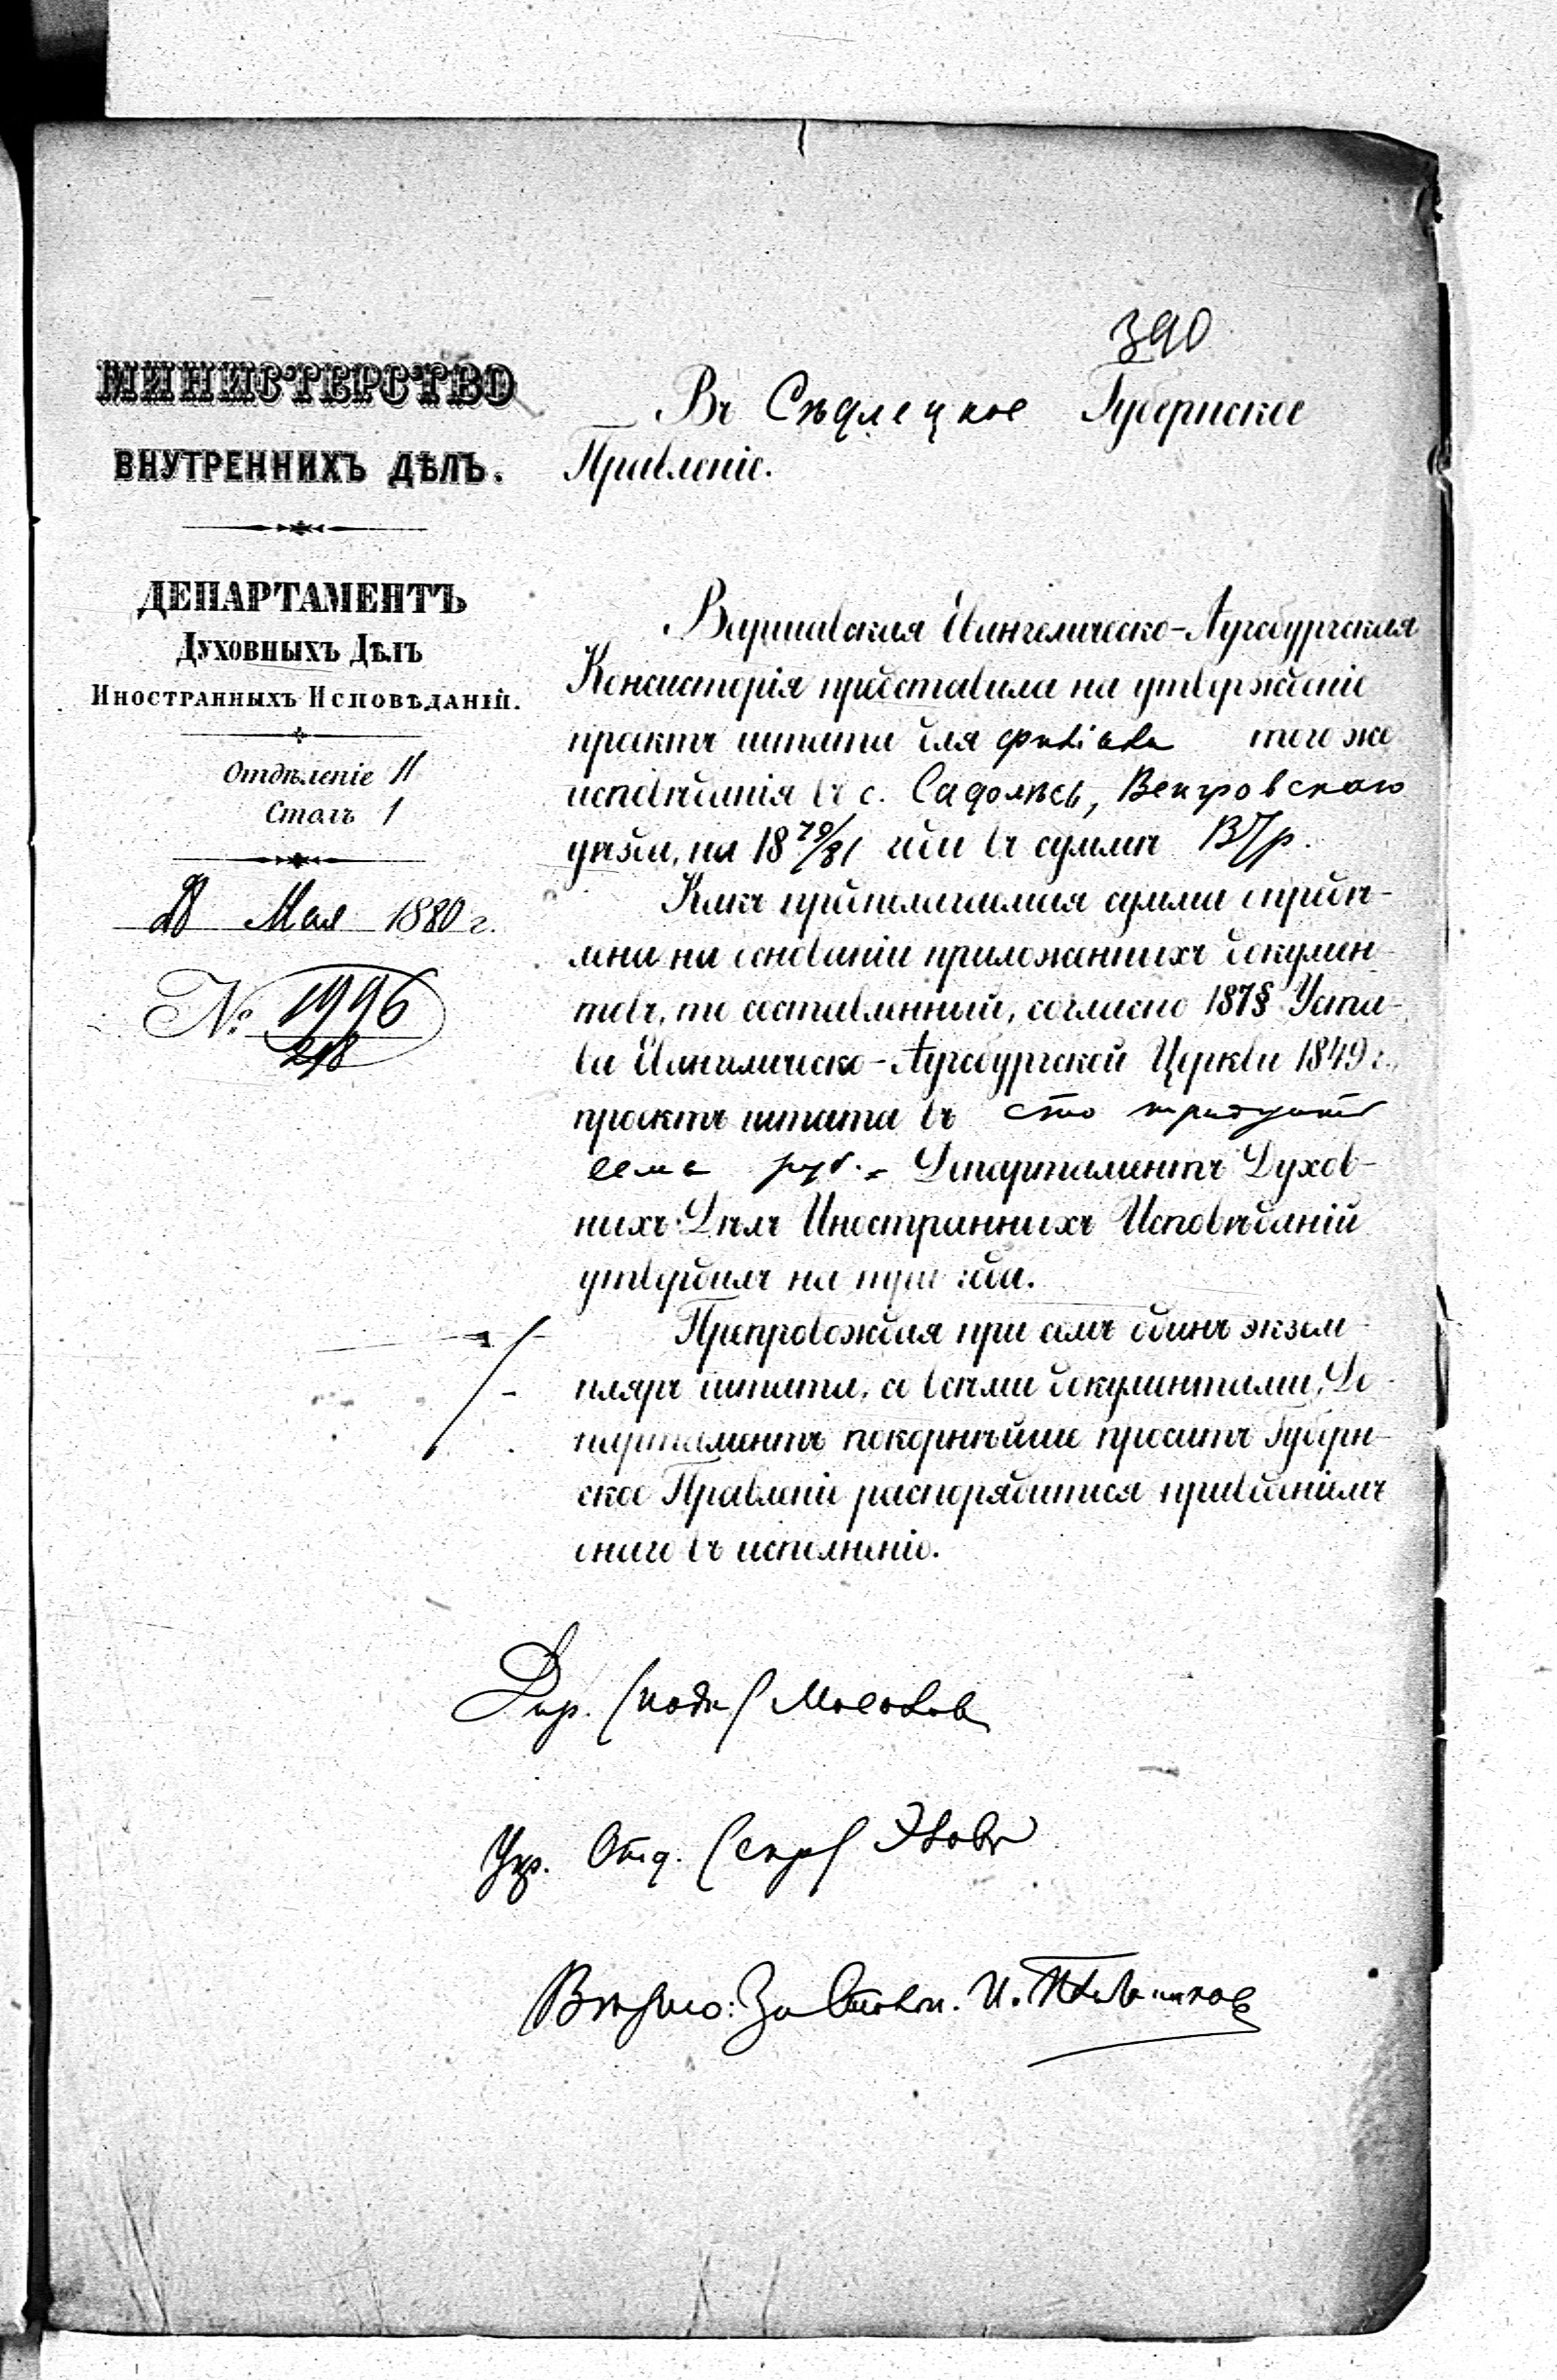 390
МИНИСТЕРСТВО
ВНУТРЕННИХЪ ДѢЛЪ.
ДЕПАРТАМЕНТЪ
ДУХОВНЫХЪ ДѢЛЪ
ИНОСТРАННЫХЪ ИСПОВѢДАНІЙ.
Отдѣленіе II
Столъ 1
28 Мая 1880 г.
№ 1996
218
Въ Сѣдлецкое Губернское
Правленіе.
Варшавская Евангелическо-Аугсбургская
Консисторія представила на утвержденіе
проектъ штата для филіала того же
исповѣданія въ с. Садолесь, Венгровскаго
уѣзда, на 18 79/81 годы въ суммѣ 137 р.
Какъ предполагаемая сумма опредѣ-
лена на основаніи приложенныхъ докумен-
товъ, то составленный, согласно 187 § Уста-
ва Евангелическо-Аугсбургской Церкви 1849 г.,
проектъ штата въ сто тридцать
семь руб. Департаментъ Духов-
ныхъ Дѣлъ Иностранныхъ Исповѣданій
утвердилъ на три года.
Препровождая при семъ одинъ экзем-
пляръ штата, со всѣми документами, Де-
партаментъ покорнѣйше проситъ Губерн-
ское Правленіе распорядиться приведеніемъ
онаго въ исполненіе.
Дир. (подп) Мосолов
Упр. Отд. (скр)
Вѣрно: За Столон. И.